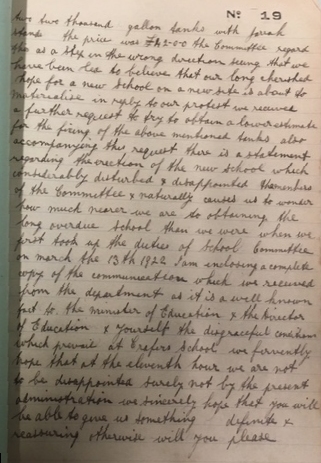 No 19
two two thousand gallon tanks with
stands the price was £42-0-0 the Committee regard
this as a step in the wrong direction seeing that we
have been led to believe that our long cherished
hope for a new School on a new site is about to
materialise in reply to our protest we received
a further request to try to obtain a lower estimate
for the fixing of the above mentioned tanks also
accompanying this request there is a statement
regarding the erection of the new School which
considerably disturbed & disappointed the members
of the Committee & naturally causes us to wonder
how much nearer we are to obtaining the
long overdue School than we were when we
first took up the duties of School Committee
on march the 13th 1922 I am inclosing a complete
copy of the communication which we received
from the department as it is a well known
fact to the minister of Education & the Director
of Education & yourself the disgraceful conditions
which prevail at School we fervently
hope that at the eleventh hour we are not
to be disappointed surely not by the present
administration we sincerely hope that you will
be able to give us something definite &
reassuring otherwise will you please